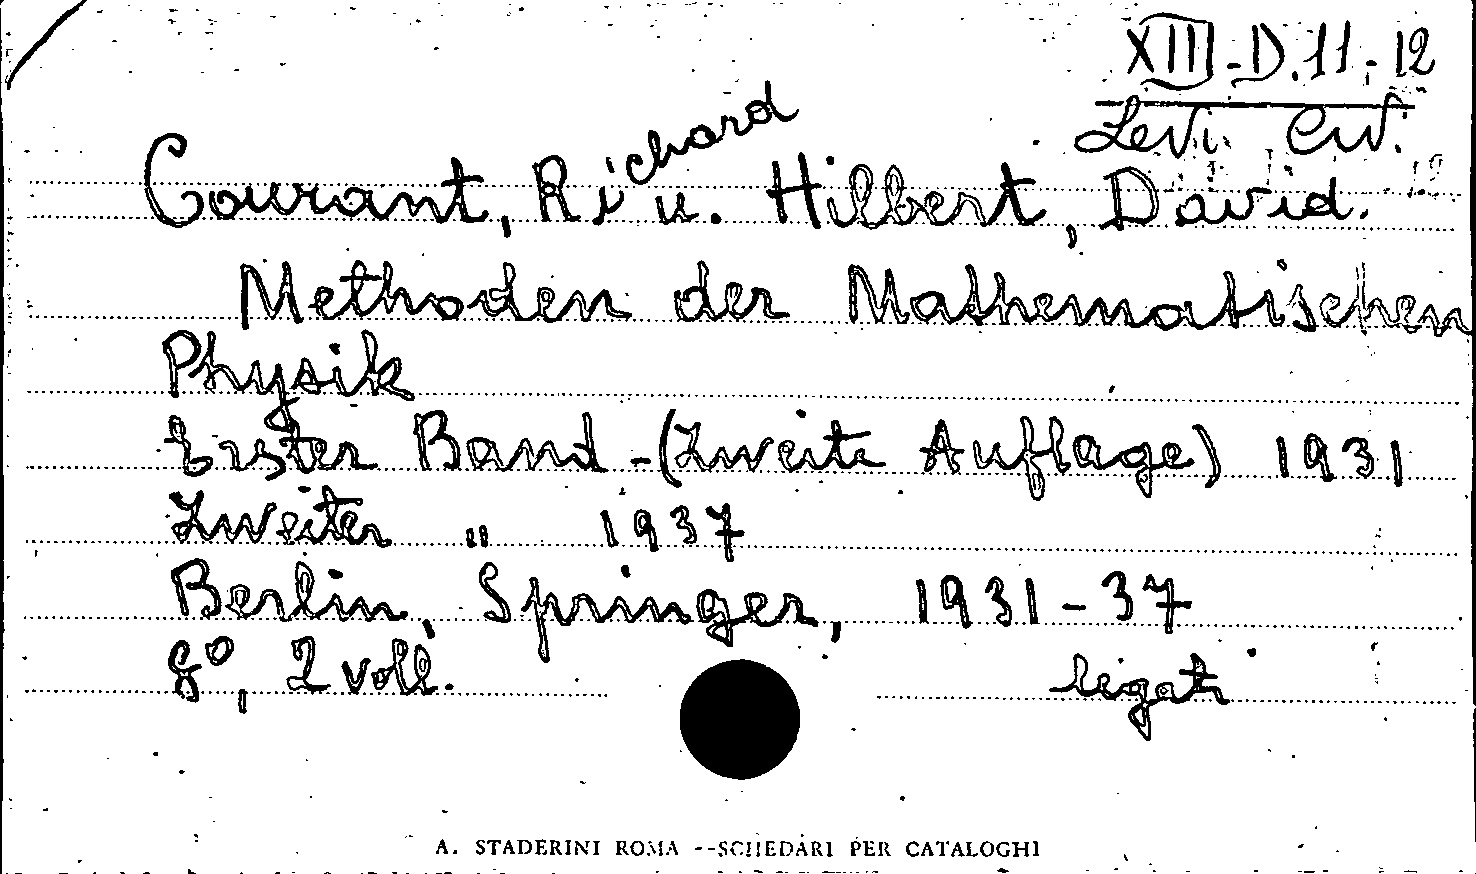 XIII-D.11-12
Levi Civ.
Courant, Richard u. Hilbert, David.
Methoden der Mathematischen
Physik
Erster Band -(Zweite Auflage) 1931
Zweiter " 1937
Berlin, Springer, 1931-37
8°, 2 voll. legati
A. STADERINI ROMA --SCHEDARI PER CATALOGHI